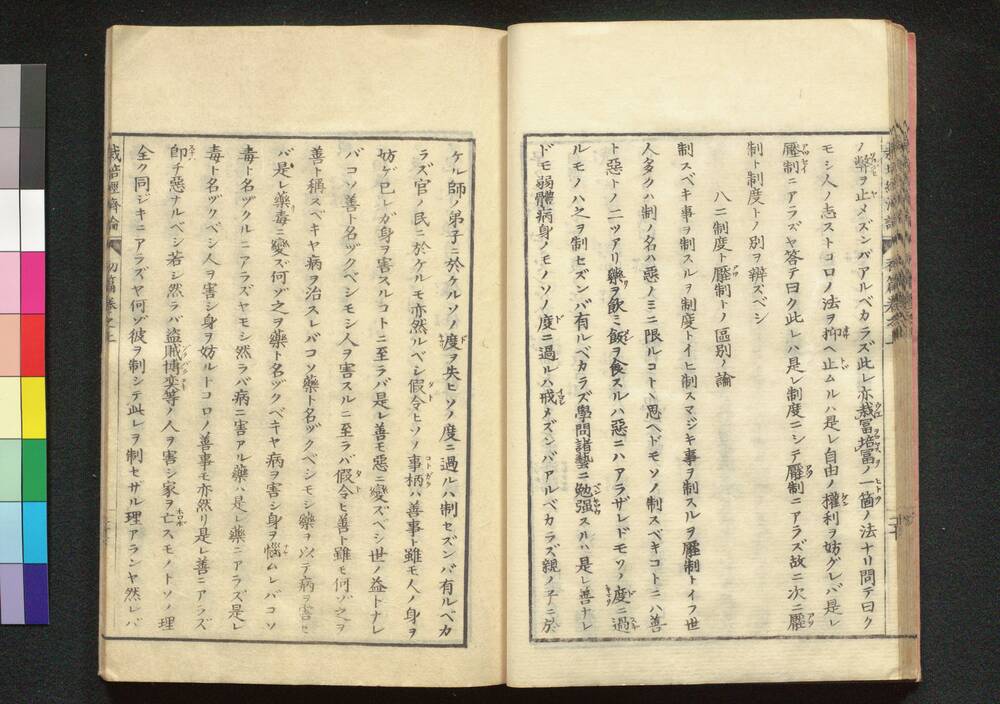 ノ弊ヲ止メズンバアルベカラズ此レ亦栽富培富一箇ノ法ナリ問テ曰ク
モシ人ノ志ストコロノ法ヲ抑ヘ止ムルハ是レ自由ノ權利ヲ妨グレバ是レ
壓制ニアラズヤ答テ曰ク此レハ是レ制度ニシテ壓制ニアラズ故ニ次ニ壓
制ト制度トノ別ヲ辨ズベシ
八ニ制度ト壓制トノ區別ノ論
制スベキ事ヲ制スルヲ制度トイヒ制スマジキ事ヲ制スルヲ壓制トイフ世
人多クハ制ノ名ハ惡ノミニ限ルコトヽ思ヘドモソノ制スベキコトニハ善
ト惡トノ二ツアリ藥ヲ飲ミ飯ヲ食スルハ惡ニハアラザレドモソノ度ニ過
ルモノハ之ヲ制セズンバ有ルベカラズ學問諸藝ニ勉强スルハ是レ善ナレ
ドモ弱體病身ノモノソノ度ニ過ルハ戒メズンバアルベカラズ親ノ子ニ於
ケル師ノ弟子ニ於ケルソノ度ヲ失ヒソノ度ニ過ルハ制セズンバ有ルベカ
ラズ官ノ民ニ於ケルモ亦然ルベシ假令ヒソノ事柄ハ善事ト雖モ人ノ身ヲ
妨ゲ已レガ身ヲ害スルコトニ至ラバ是レ善モ惡ニ變ズベシ世ノ益トナレ
バコソ善ト名ヅクベシモシ人ヲ害スルニ至ラバ假令ヒ善ト雖モ何ゾ之ヲ
善ト稱スベキヤ病ヲ治スレバコソ藥ト名ヅクベシモシ藥ヲ以テ病ヲ害セ
バ是レ藥毒ニ變ズ何ゾ之ヲ藥ト名ヅクベキヤ病ヲ害シ身ヲ惱ムレバコソ
毒ト名ヅクルニアラズヤモシ然ラバ病ニ害アル藥ハ是レ藥ニアラズ是レ
毒ト名ヅクベシ人ヲ害シ身ヲ妨ルトコロノ善事モ亦然リ是レ善ニアラズ
即チ惡ナルベシ若シ然ラバ盜賊博奕等ノ人ヲ害シ家ヲ亡スモノトソノ理
全ク同ジキニアラズヤ何ゾ彼ヲ制シテ此レヲ制セザル理アランヤ然レバ
栽培經濟論 初篇卷之上